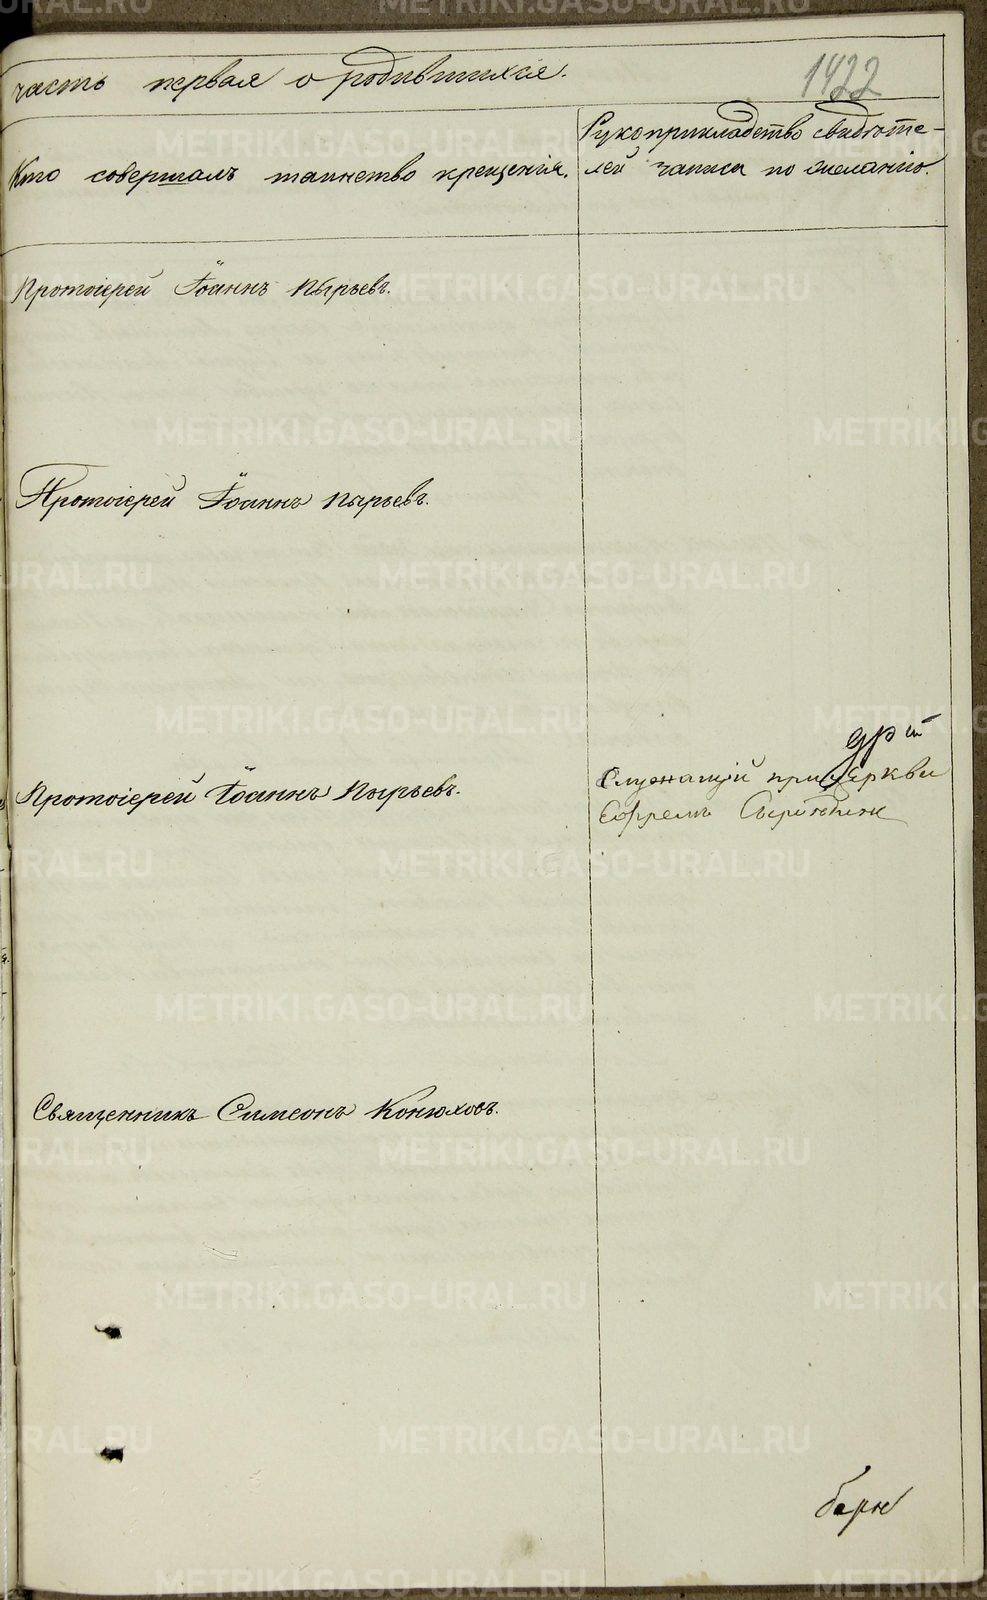 часть первая о родившихся.
1422
Кто совершалъ таинство крещенія.
Рукоприкладство свидѣте-
лей записи по желанію.
Протоіерей Іоаннъ Пырьевъ.
Протоіерей Іоаннъ Пырьевъ.
Протоіерей Іоаннъ Пырьевъ.
Служащій при церкви
Ефремъ
Священникъ Симеонъ Конюховъ.
METRIKI.GASO-URAL.RU